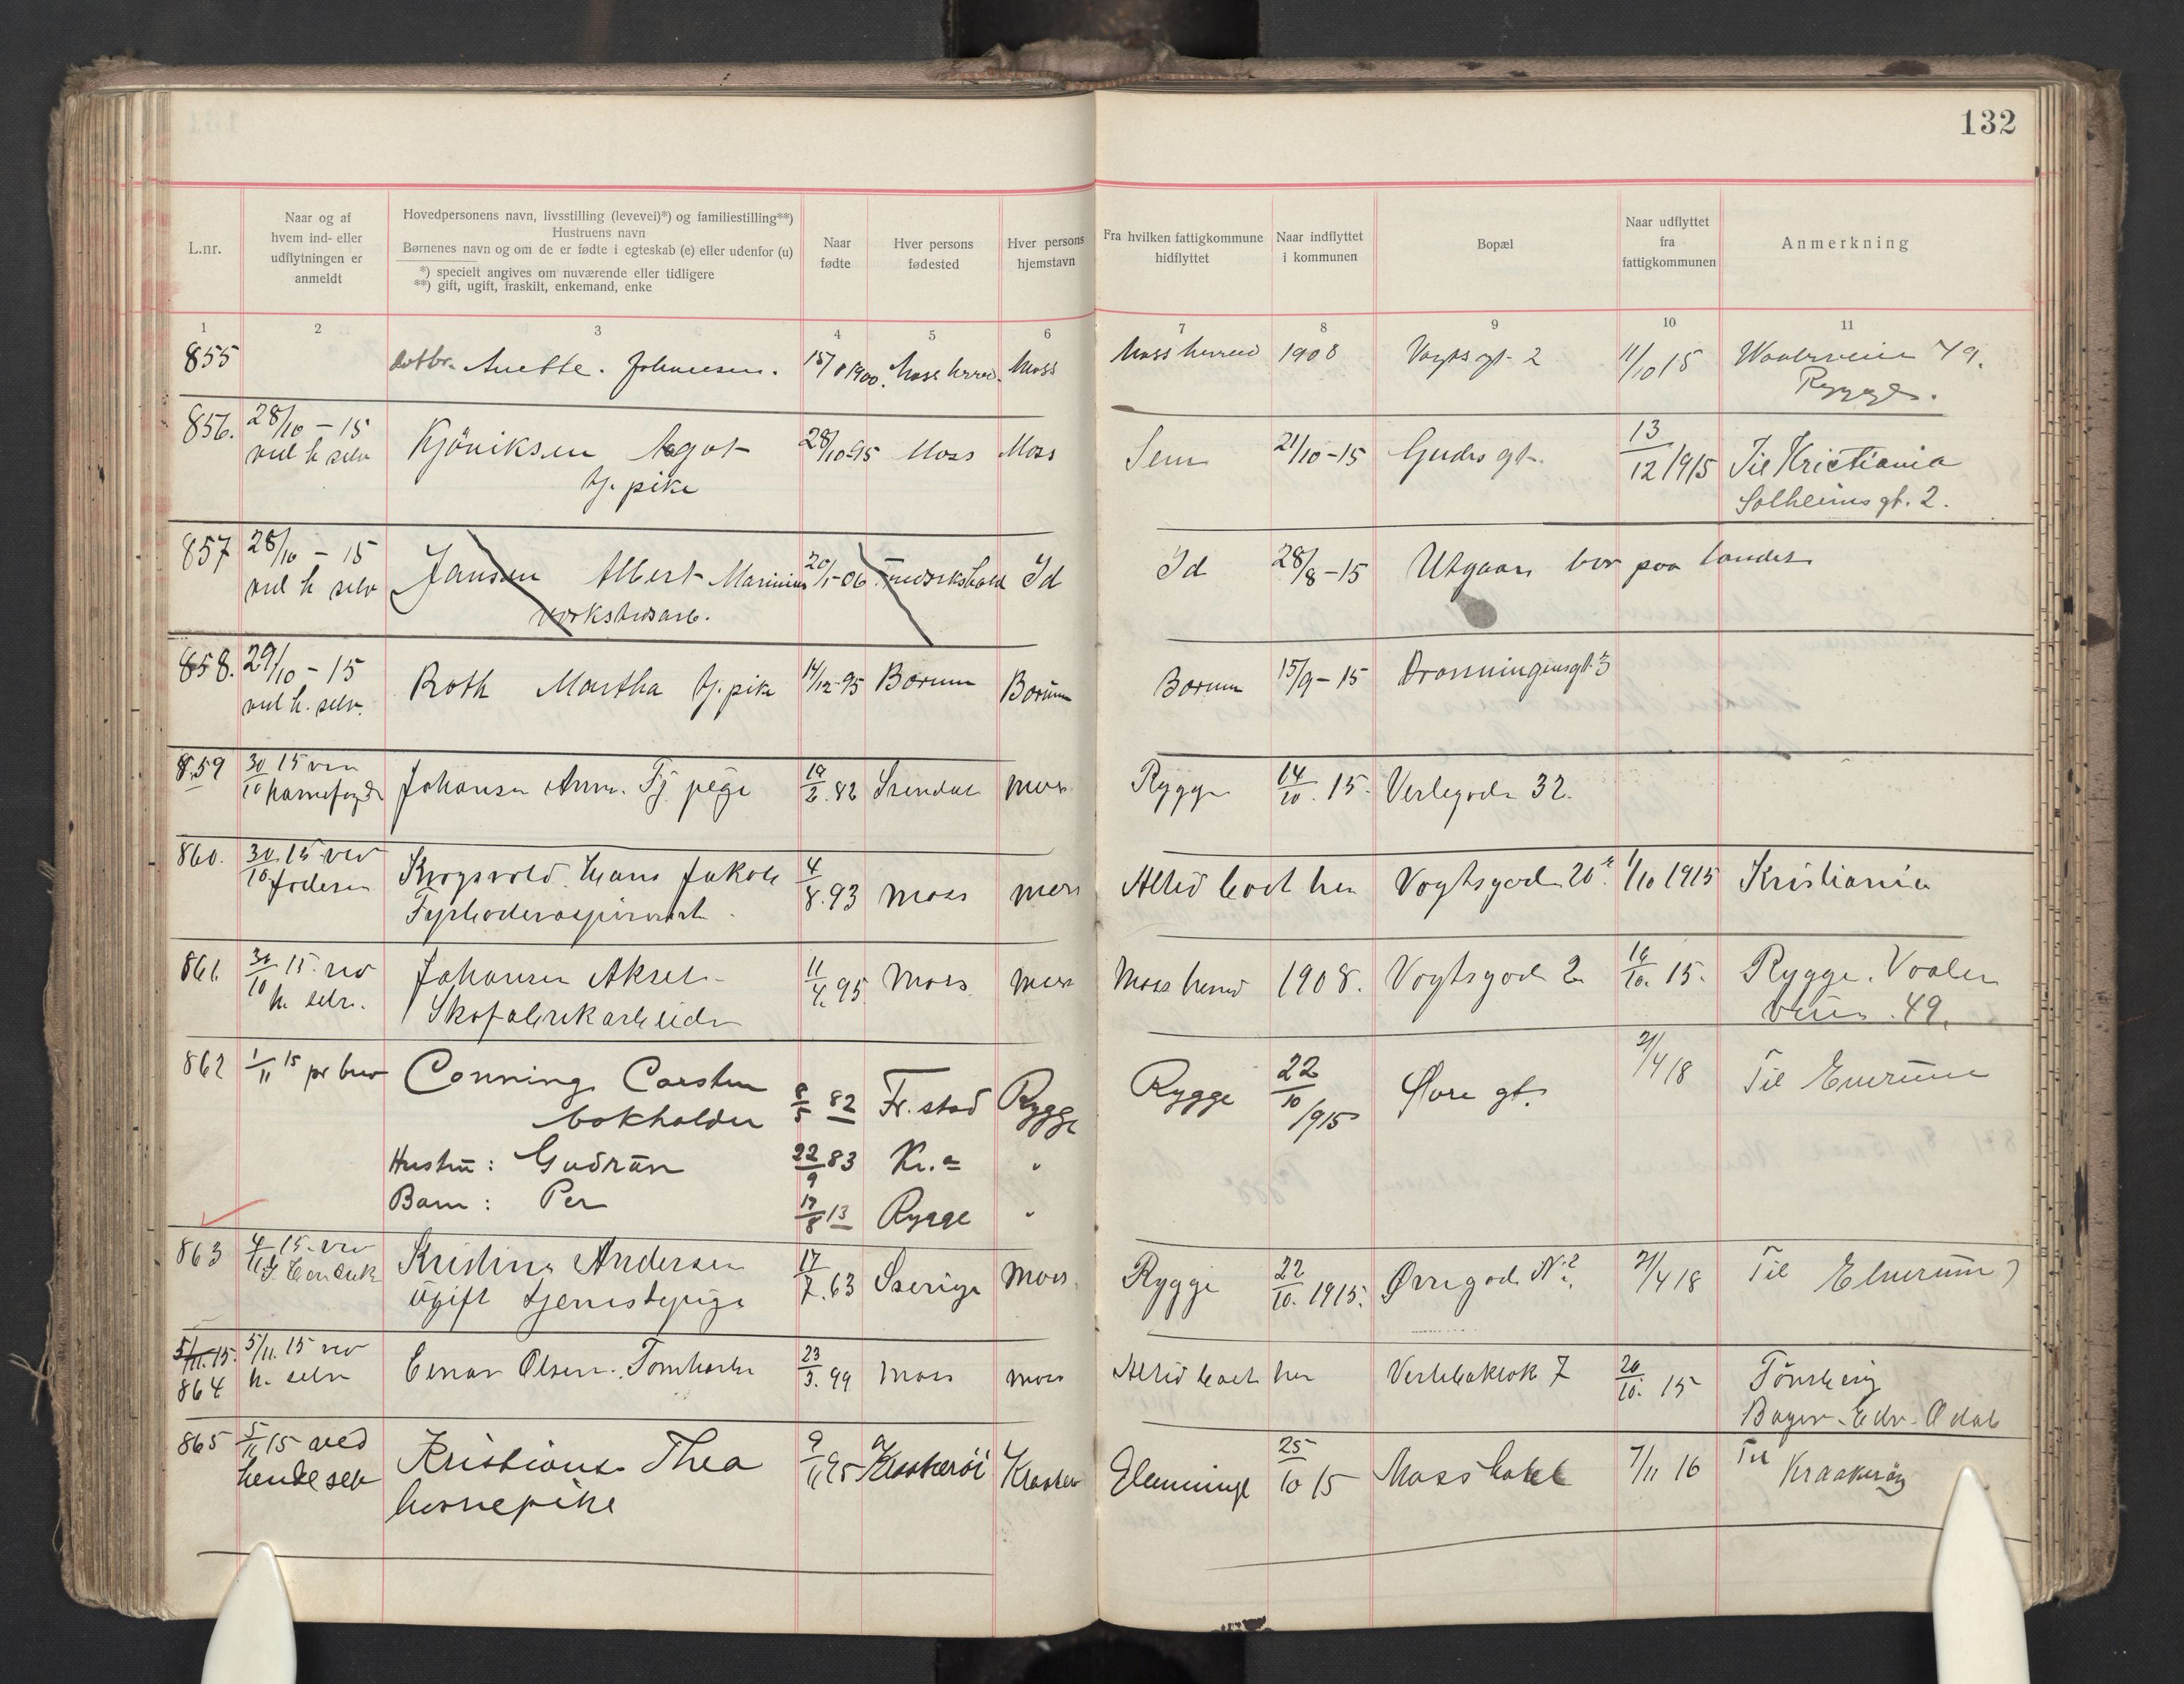 132
L.nr.
Naar og af
hvem ind- eller
udflytningen er
anmeldt
Hovedpersonens navn, livsstilling (levevei)*) og familiestilling**)
Hustruens navn
Børnenes navn og om de er fødte i egteskab (e) eller udenfor (u)
*) specielt angives om nuværende eller tidligere
**) gift, ugift, fraskilt, enkemand, enke
Naar
fødte
Hver persons
fødested
Hver persons
hjemstavn
Fra hvilken fattigkommune
hidflyttet
Naar indflyttet
i kommunen
Bopæl
Naar udflyttet
fra
fattigkommunen
Anmerkning
1 2 3 4 5 6 7 8 9 10 11
855 Anette. Johansen. 15/8 1900. Moss herred. Moss Moss herred 1908 Vogts gt. 2 11/10 15 49.
Rygge.
856. 28/10 - 15 Kjöniksen Agot 28/10-95 Moss Moss Sem 21/10-15 Gudes gt. 13/12 1915 Til Kristiania
ved h selv tj. pike Solheims gt. 2.
857 28/10 - 15 Jansen Albert Marinius 20/1-06 Fredrikshald Id Id 28/8-15 Utgaar bor paa landet
ved h selv verkstedsarb.
858. 29/10 - 15 Roth Martha tj. pike 14/12-95 Borum Borum Borum 15/9-15 Dronningensgt. 3
ved h. selv.
859 30/10 15 Johansen Anna. Tj pige 82 Moss Rygge 14/10. 15. Verlegaden 32.
860. 30/10. 15 ved Krogsvold. Hans Jakob 4/8. 93 Moss Moss Altid boet her Vogtsgaden 20 1/10 1915 Kristiania
861. 30/10 15. ved Johansen Aksel 11/4. 95 Moss Moss Moss herred 1908. Vogtsgaden 2 15. Rygge. Vaaler
h. selv. Skofabrikarbeider veien. 49.
862 1/11 15 pr brev Conning Carsten 8/5 82 Fr.stad Rygge Rygge 22/10 1915 Øvre gt. 2/4 18 Til Elverum
bokholder
Hustru: Gudrun 22/9 83 Kr.a "
Barn: Per 17/8 13 Rygge "
863 4/11 15. ved Kristine Andersen 17/7. 63 Sverige Moss Rygge 22/10. 1915. Øvregaden N. 2/4 18 Til Elverum
ugift tjenestepige
5/11. 15.
864 5/11. 15 ved Einar Olsen. 23/3. 99 Moss Moss Altid boet her 7 20/10. 15 Tönsberg
h. selv Bager
865 5/11 15 ved Kristiansen Thea 9/11 95 Kraakerøi Glemminge 25/10 15 Moss hotel 7/11 16 Til Kraakerøy
hende selv kornepike